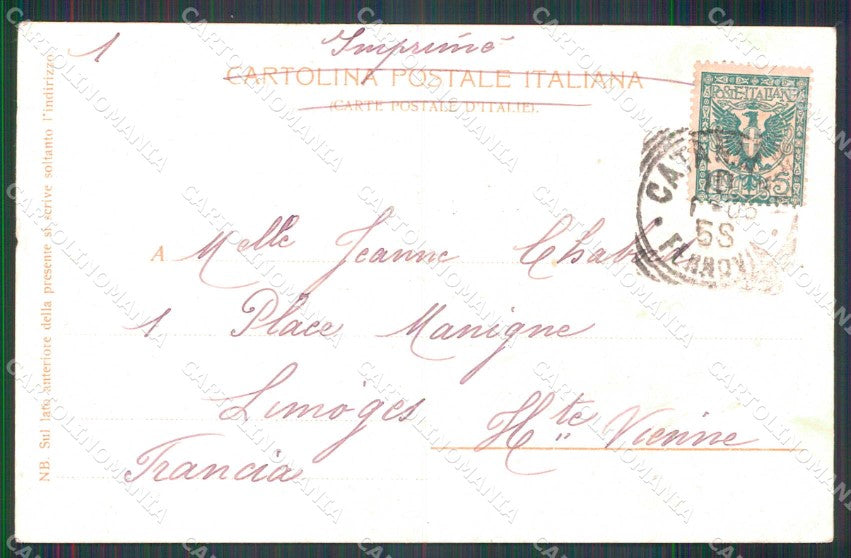 1 Imprimé
CARTOLINA POSTALE ITALIANA
(CARTE POSTALE D'ITALIE).
POSTE ITALIANE
5
10
05
5S
FERROVIA
A Melle Jeanne
1 Place Manigne
Limoges
Hte Vienne
Francia
NB. Sul lato anteriore della presente si scrive soltanto l'indirizzo
CARTOLINOMANIA